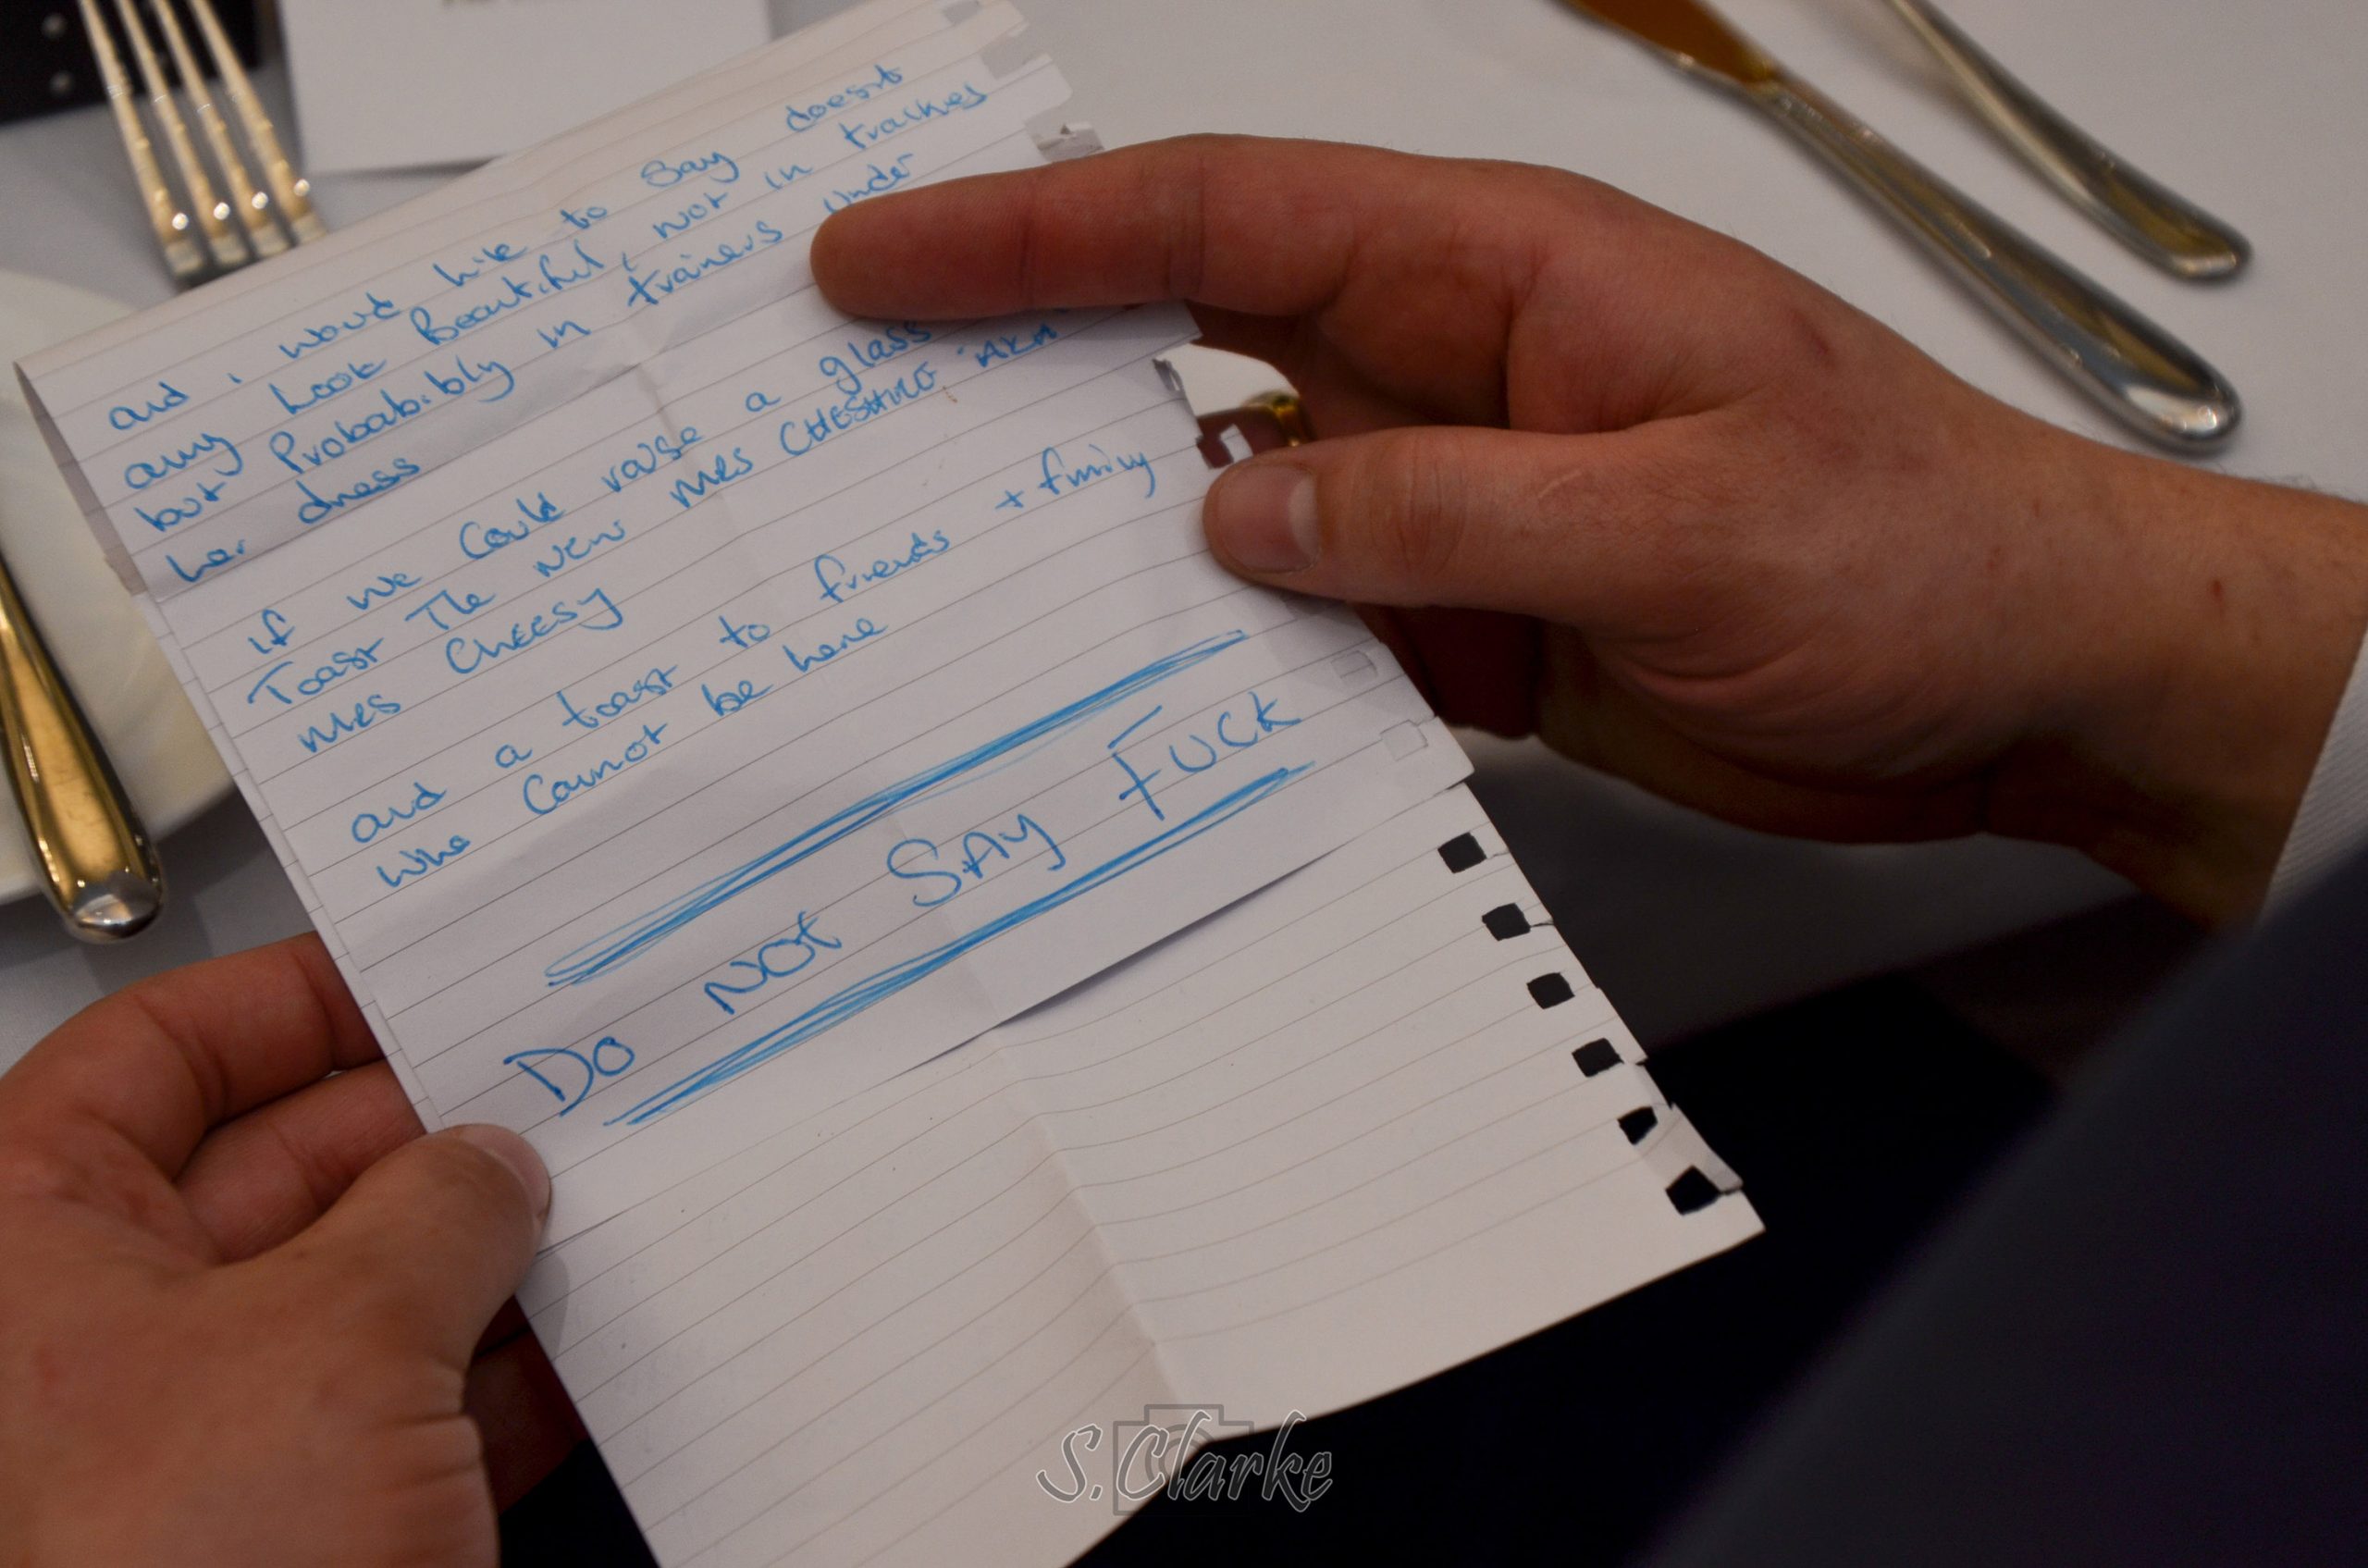 and i would like to say doesnt
amy look Beautiful, not in trackies
but Probabibly in trainers under
her dress
if we could raise a glass
Toast The New MRS "AKA"
MRS CHEESY
and a toast to friends + fimily
who cannot be here
DO NOT SAY FUCK
S.Clarke